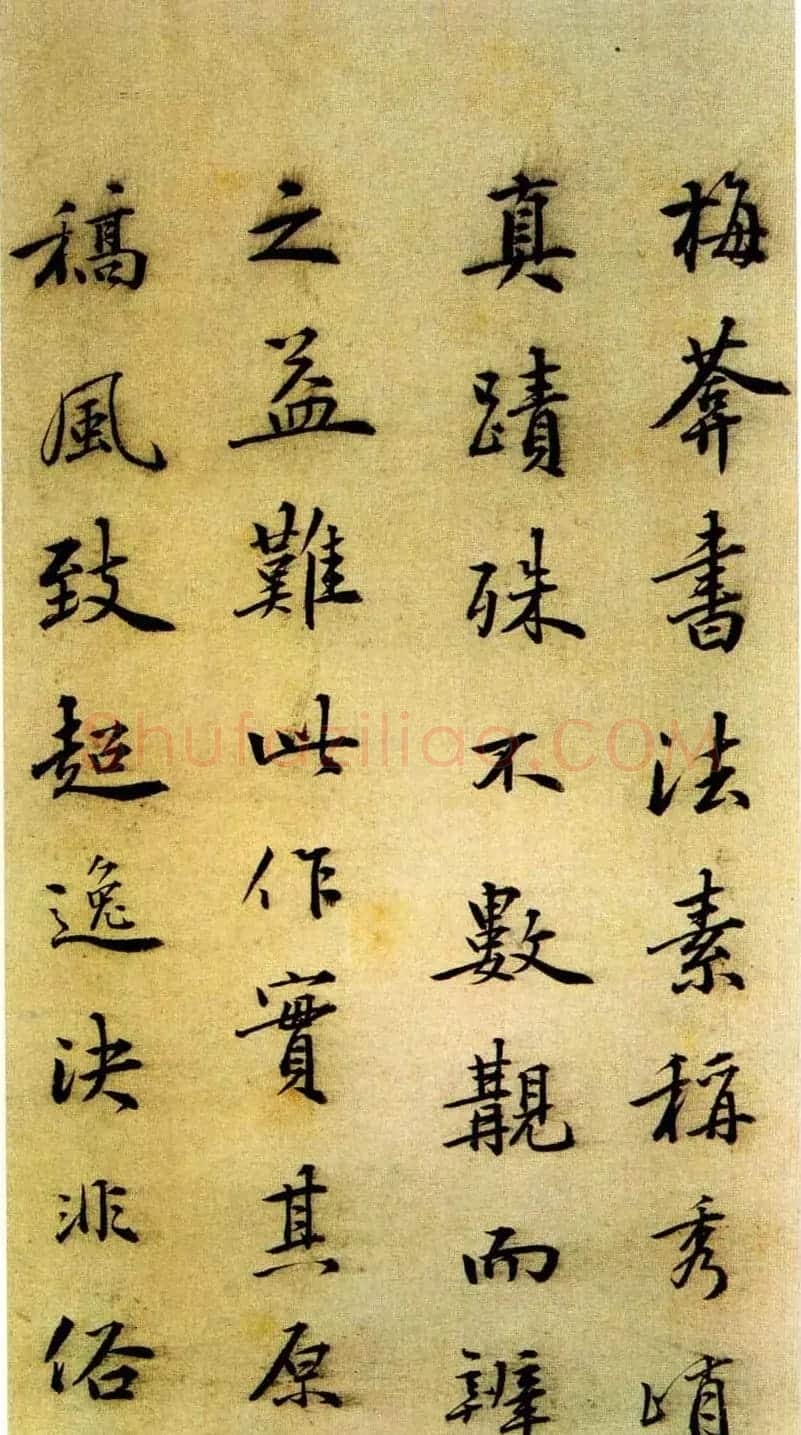 梅葊書法素稱秀峭
真蹟殊不數覯而辨
之益難此作實其原
稿風致超逸決非俗
Shufaziliao.COM